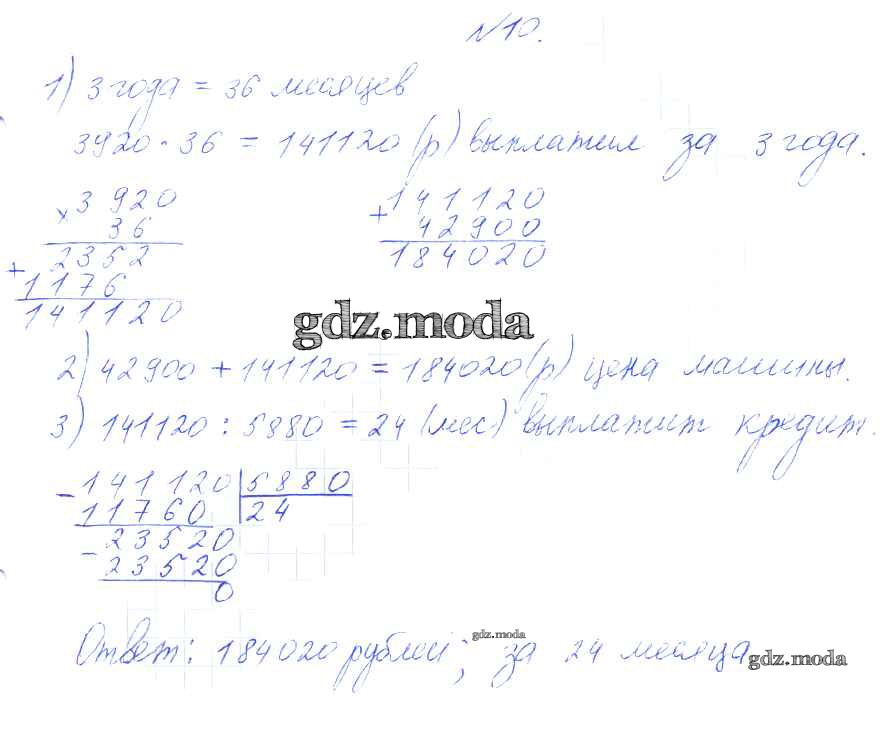 №10.
1) 3 года = 36 месяцев
3920 · 36 = 141120 (р) выплатил за 3 года.
× 3920
36
2352
+ 1176
141120
+ 141120
42900
184020
gdz.moda
2) 42900 + 141120 = 184020 (р) цена машины.
3) 141120 : 5880 = 24 (мес) выплатит кредит.
- 141120 | 5880
11760 | 24
- 23520
23520
0
gdz.moda
Ответ: 184020 рублей; за 24 месяца
gdz.moda